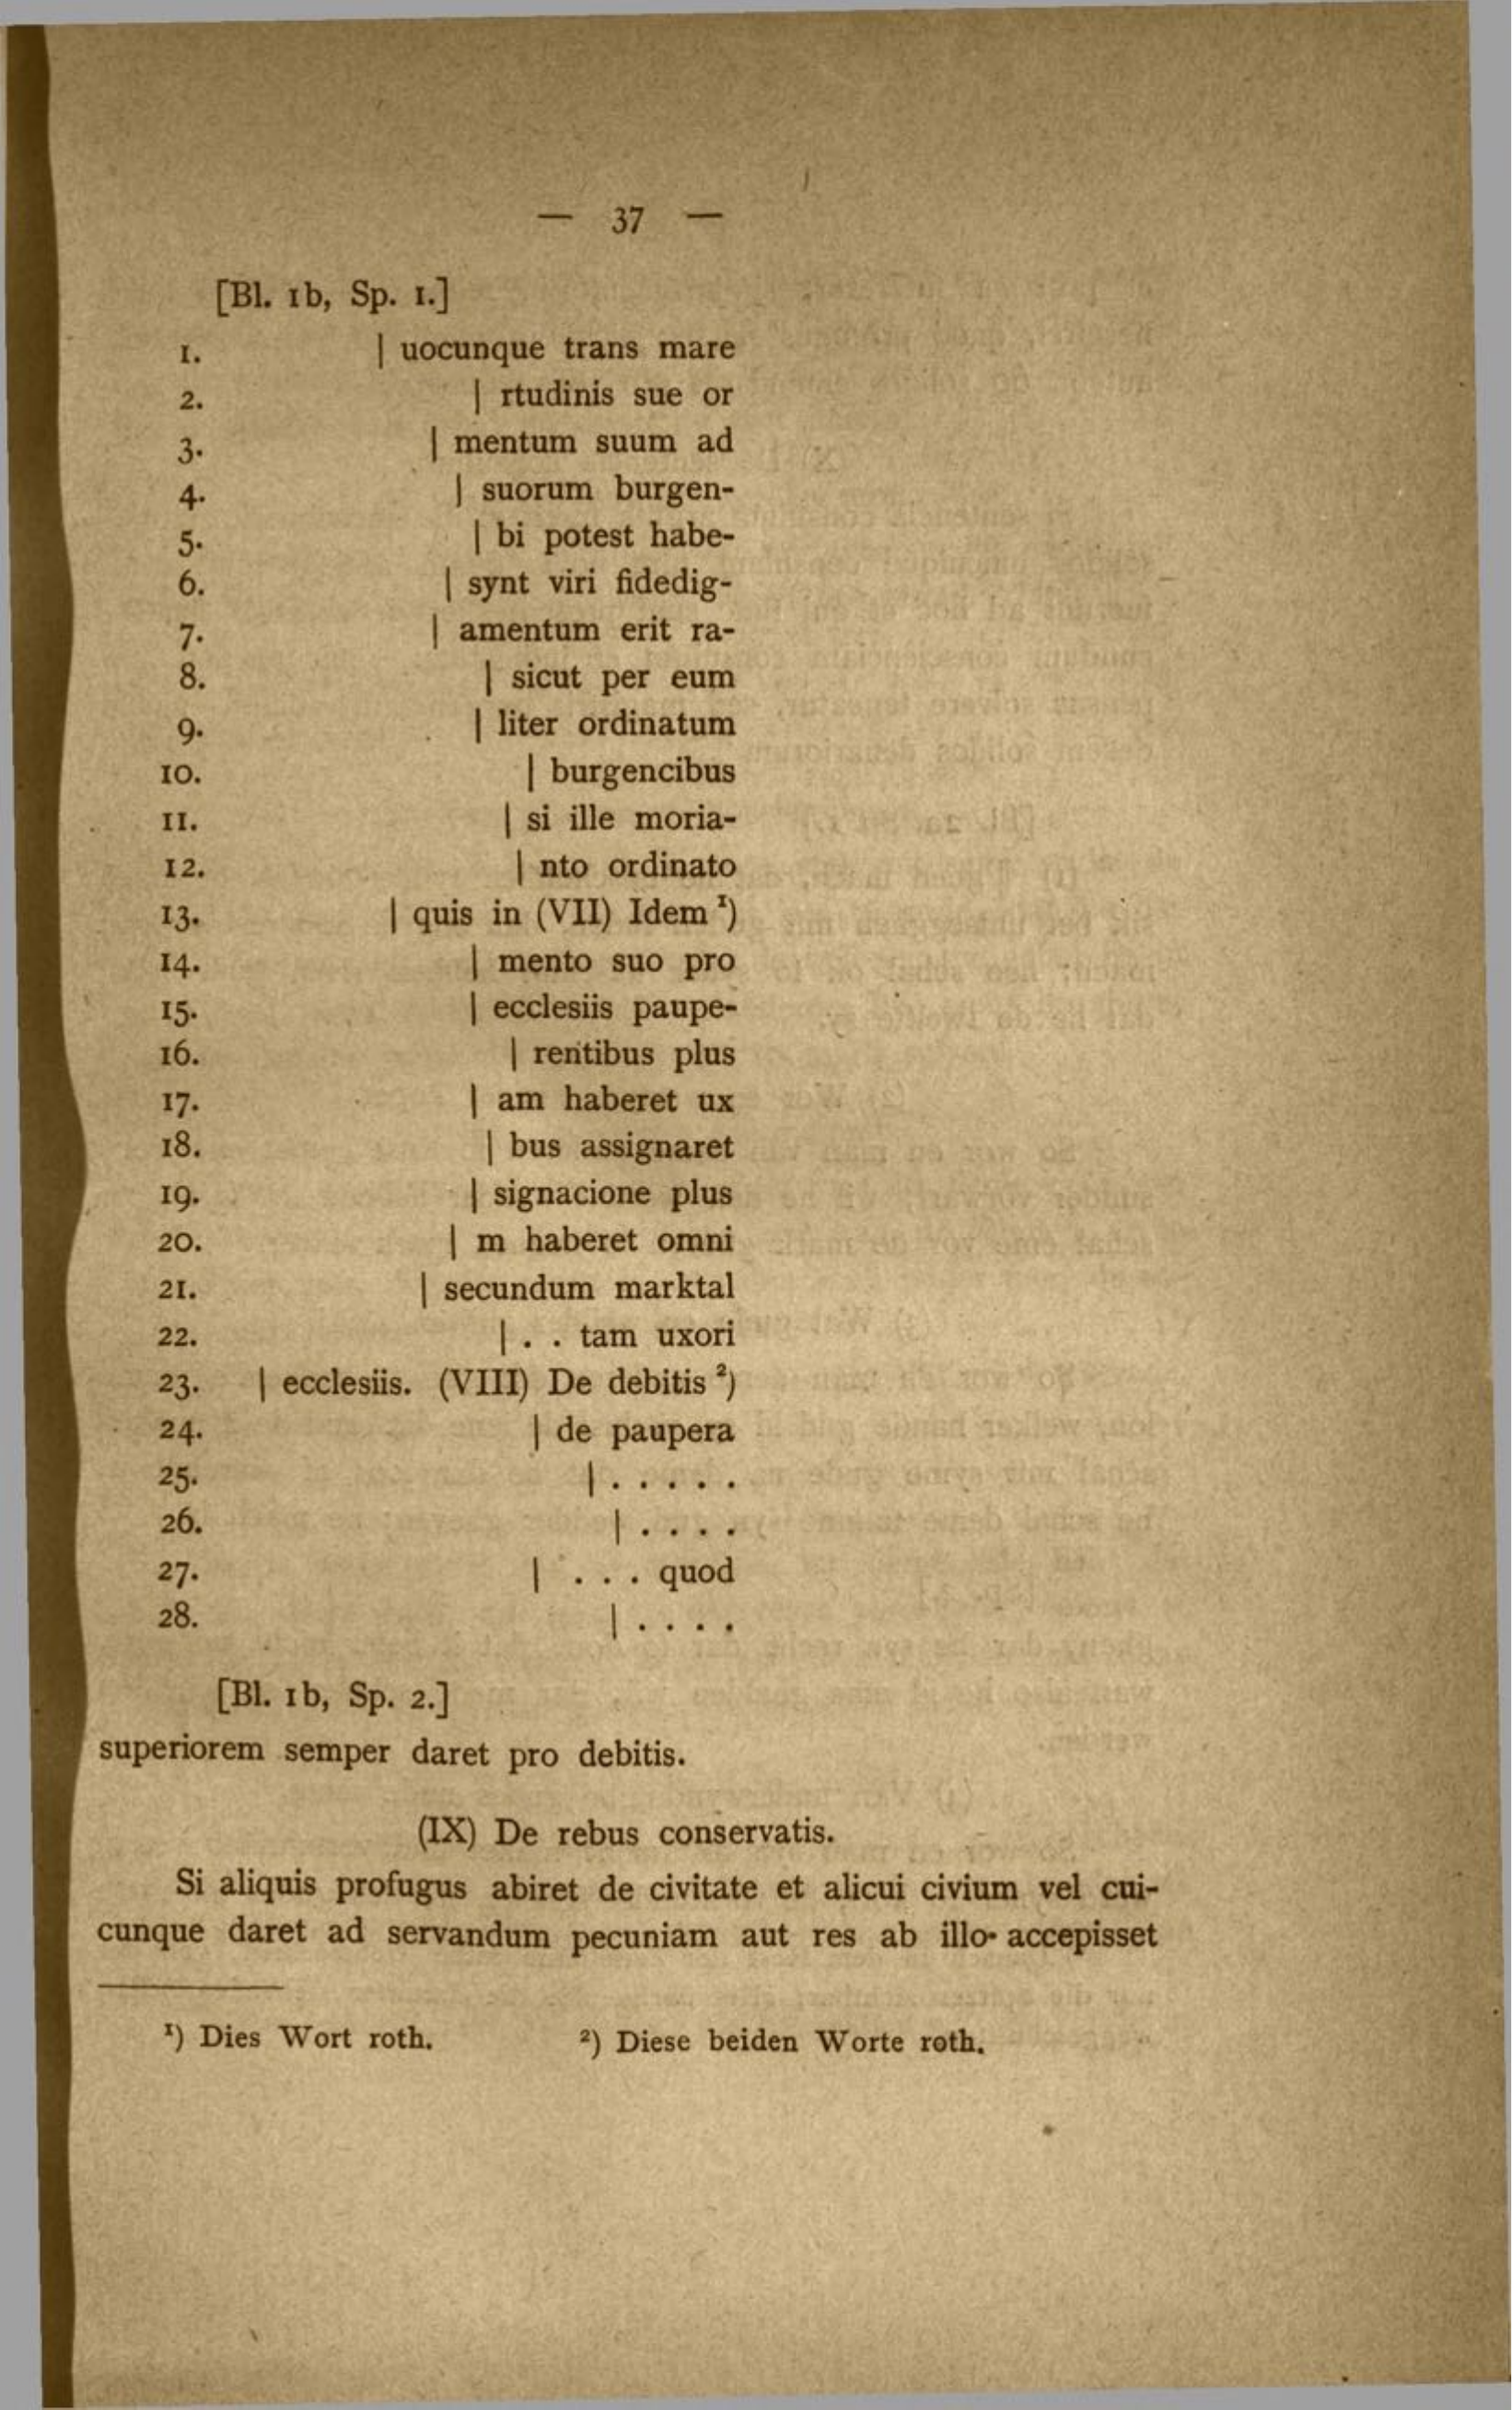 — 37 —
[Bl. 1b, Sp. 1.]
1. | uocunque trans mare
2. | rtudinis sue or
3. | mentum suum ad
4. | suorum burgen-
5. | bi potest habe-
6. | synt viri fidedig-
7. | amentum erit ra-
8. | sicut per eum
9. | liter ordinatum
10. | burgencibus
11. | si ille moria-
12. | nto ordinato
13. | quis in (VII) Idem ¹)
14. | mento suo pro
15. | ecclesiis paupe-
16. | rentibus plus
17. | am haberet ux
18. | bus assignaret
19. | signacione plus
20. | m haberet omni
21. | secundum marktal
22. | . . tam uxori
23. | ecclesiis. (VIII) De debitis ²)
24. | de paupera
25. | . . . . .
26. | . . . .
27. | . . . quod
28. | . . . .
[Bl. 1b, Sp. 2.]
superiorem semper daret pro debitis.
(IX) De rebus conservatis.
Si aliquis profugus abiret de civitate et alicui civium vel cui-
cunque daret ad servandum pecuniam aut res ab illo accepisset
¹) Dies Wort roth. ²) Diese beiden Worte roth.